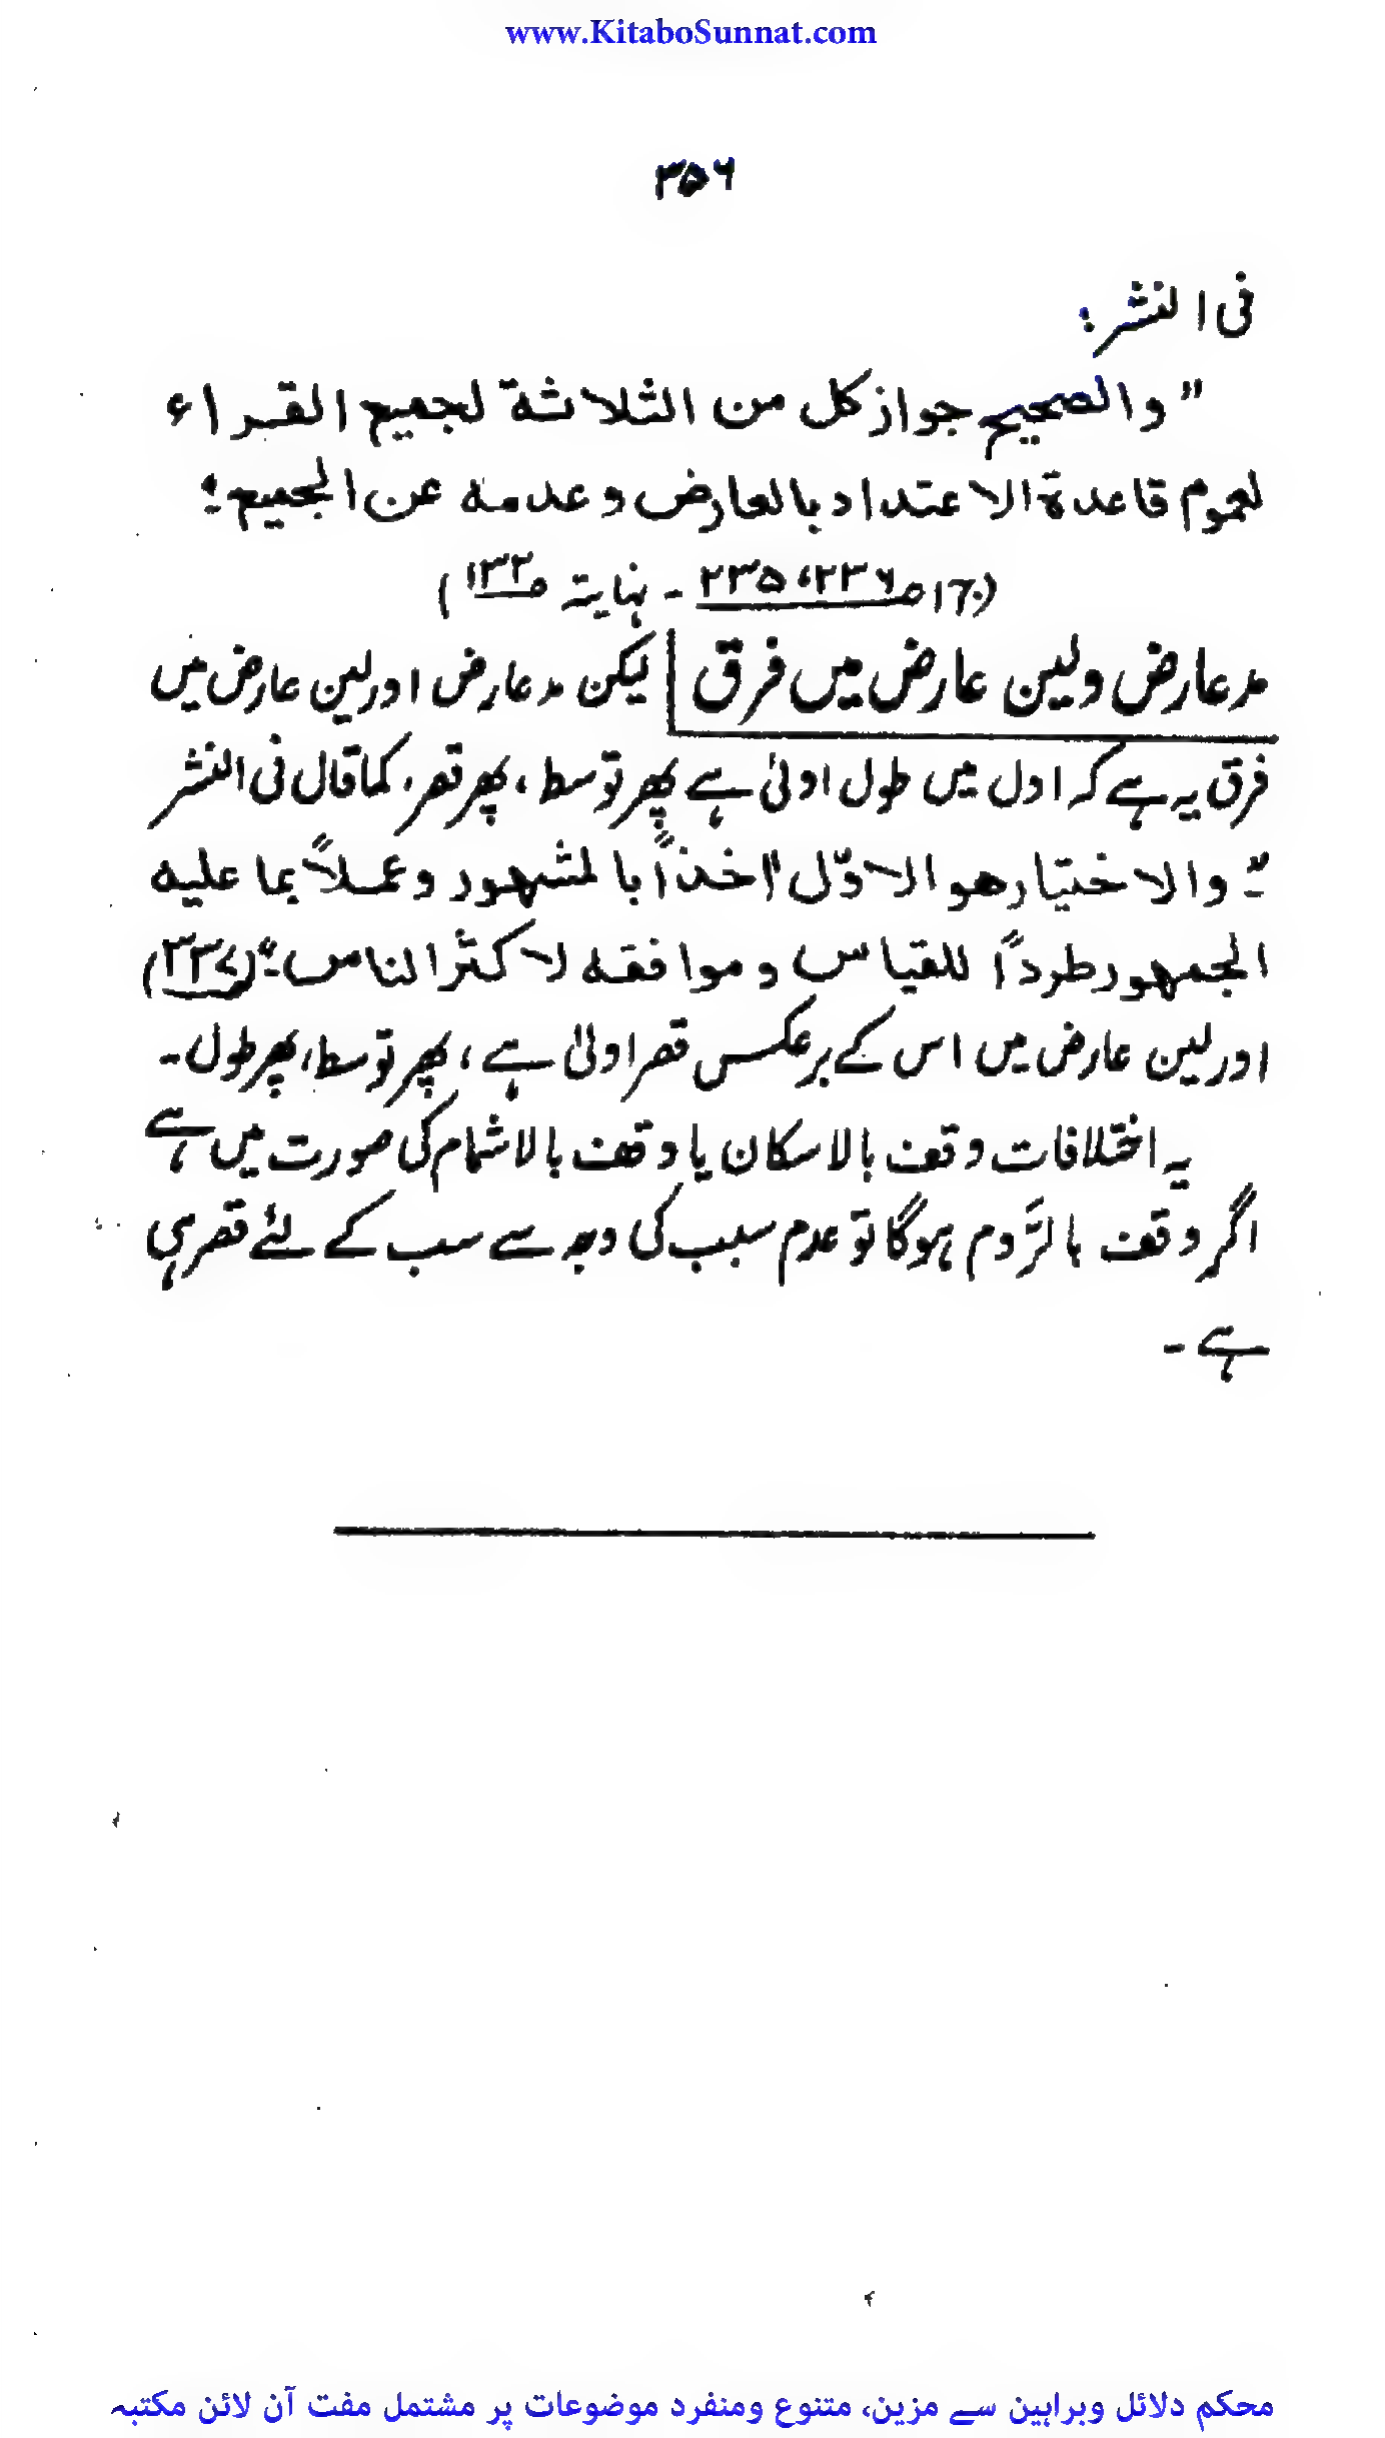 www.KitaboSunnat.com
۳۵۶
فی النشر:
" والصحیح جواز کل من الثلاثة لجمیع القراء
لعموم قاعدة الاعتداد بالعارض وعدمه عن الجمیع؛
(ج۱ ص۲۳۵،۲۳۶ - نہایۃ ص۱۳۲)
مد عارض ولین عارض میں فرق | لیکن مد عارض اور لین عارض میں
فرق یہ ہے کہ اول میں طول اولیٰ ہے پھر توسط، پھر قصر، کما قال فی النشر
:" والاختیار هو الاوّل اخذاً بالمشهور وعملاً بما علیه
الجمهور طرداً للقیاس وموافقه لاکثر الناس:" (۳۳۷)
اور لین عارض میں اس کے برعکس قصر اولیٰ ہے، پھر توسط، پھر طول۔
یہ اختلافات وقف بالاسکان یا وقف بالاشمام کی صورت میں ہے
اگر وقف بالرَّوم ہوگا تو عدم سبب کی وجہ سے سب کے لئے قصر ہی
ہے۔
محکم دلائل وبراہین سے مزین، متنوع ومنفرد موضوعات پر مشتمل مفت آن لائن مکتبہ